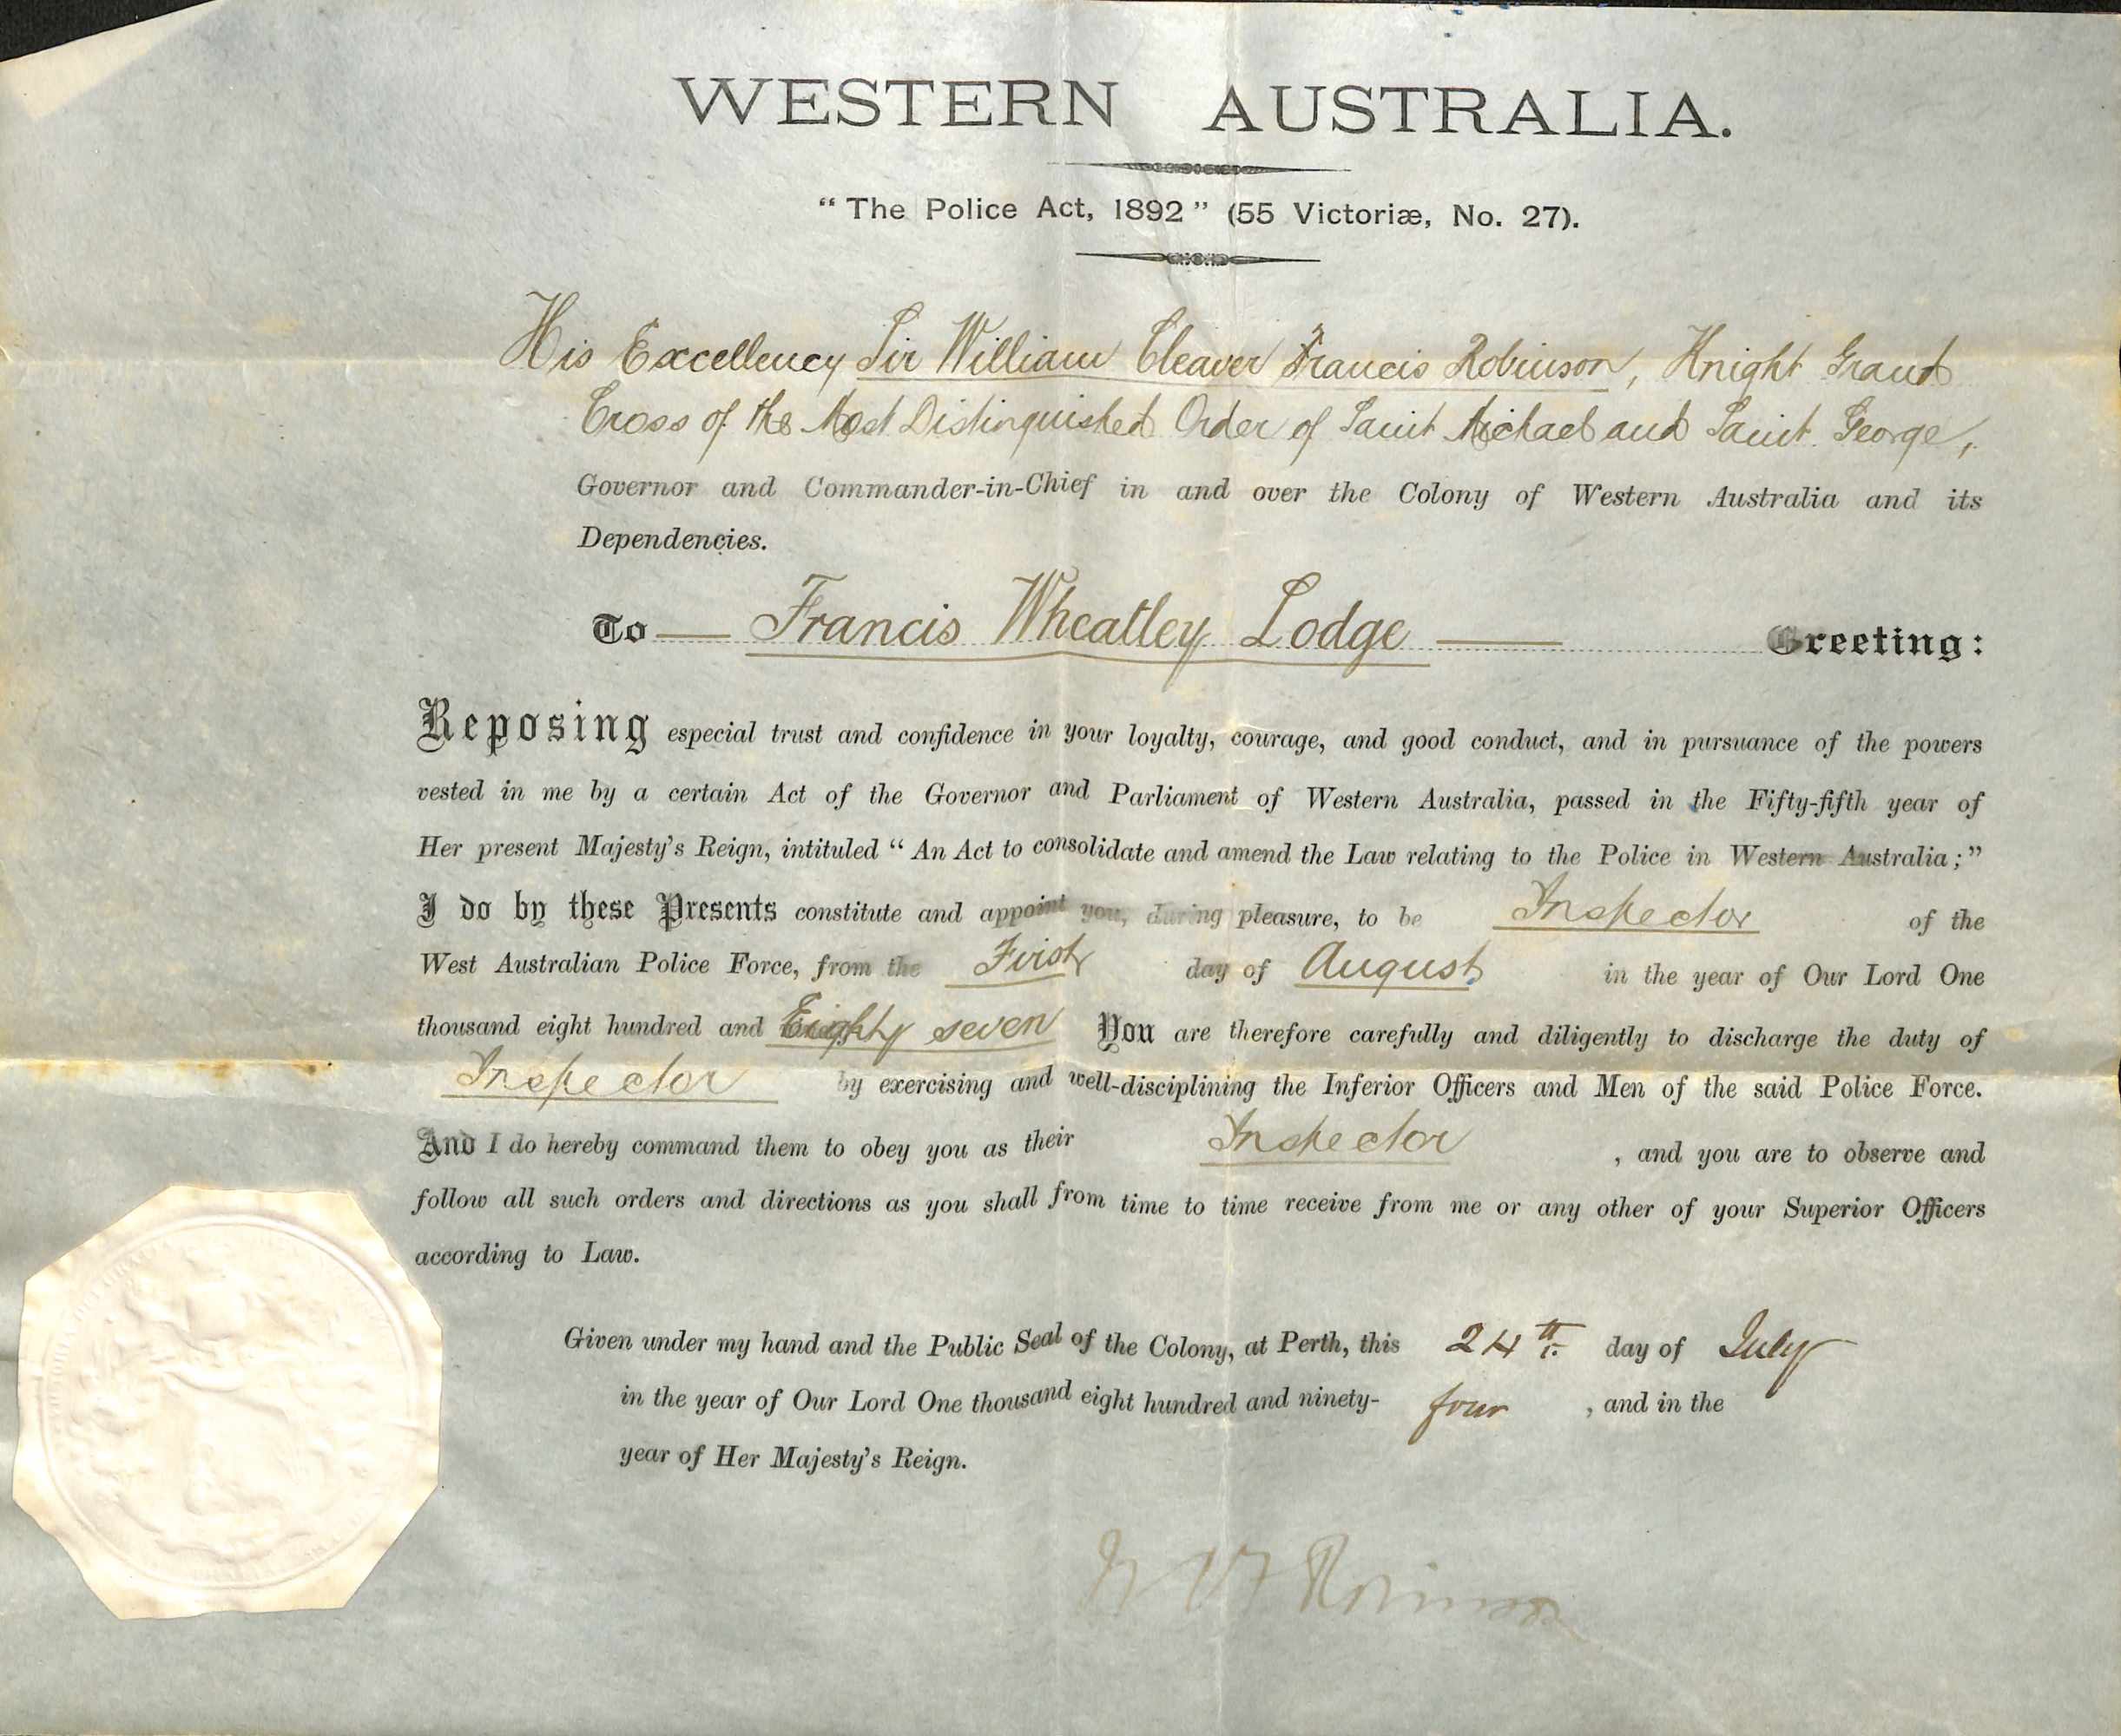 WESTERN AUSTRALIA.
“The Police Act, 1892” (55 Victoriæ, No. 27).
His Excellency Sir William Cleaver Francis Robinson, Knight Grand
Cross of the Most Distinguished Order of Saint Michael and Saint George,
Governor and Commander-in-Chief in and over the Colony of Western Australia and its
Dependencies.
To Francis Wheatley Lodge Greeting:
Reposing especial trust and confidence in your loyalty, courage, and good conduct, and in pursuance of the powers
vested in me by a certain Act of the Governor and Parliament of Western Australia, passed in the Fifty-fifth year of
Her present Majesty's Reign, intituled “An Act to consolidate and amend the Law relating to the Police in Western Australia;”
I do by these Presents constitute and appoint you, during pleasure, to be Inspector of the
West Australian Police Force, from the First day of August in the year of Our Lord One
thousand eight hundred and Eighty seven You are therefore carefully and diligently to discharge the duty of
Inspector by exercising and well-disciplining the Inferior Officers and Men of the said Police Force.
And I do hereby command them to obey you as their Inspector , and you are to observe and
follow all such orders and directions as you shall from time to time receive from me or any other of your Superior Officers
according to Law.
Given under my hand and the Public Seal of the Colony, at Perth, this 24th day of July
in the year of Our Lord One thousand eight hundred and ninety- four , and in the
year of Her Majesty's Reign.
W C F Robinson